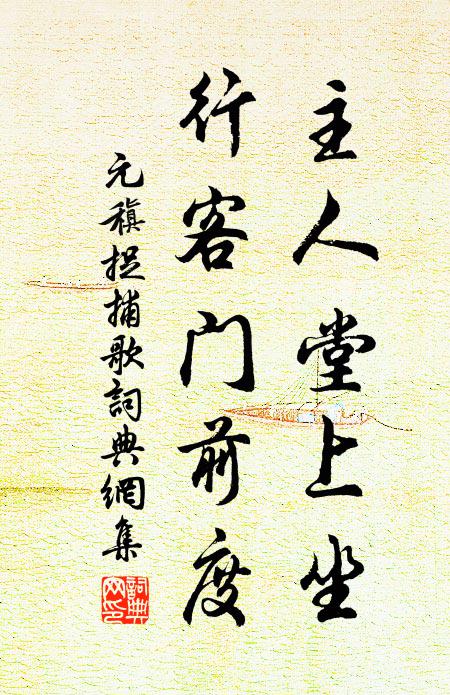 主人堂上坐
行客门前度
元稹捉捕歌詞典網集
詞典網印